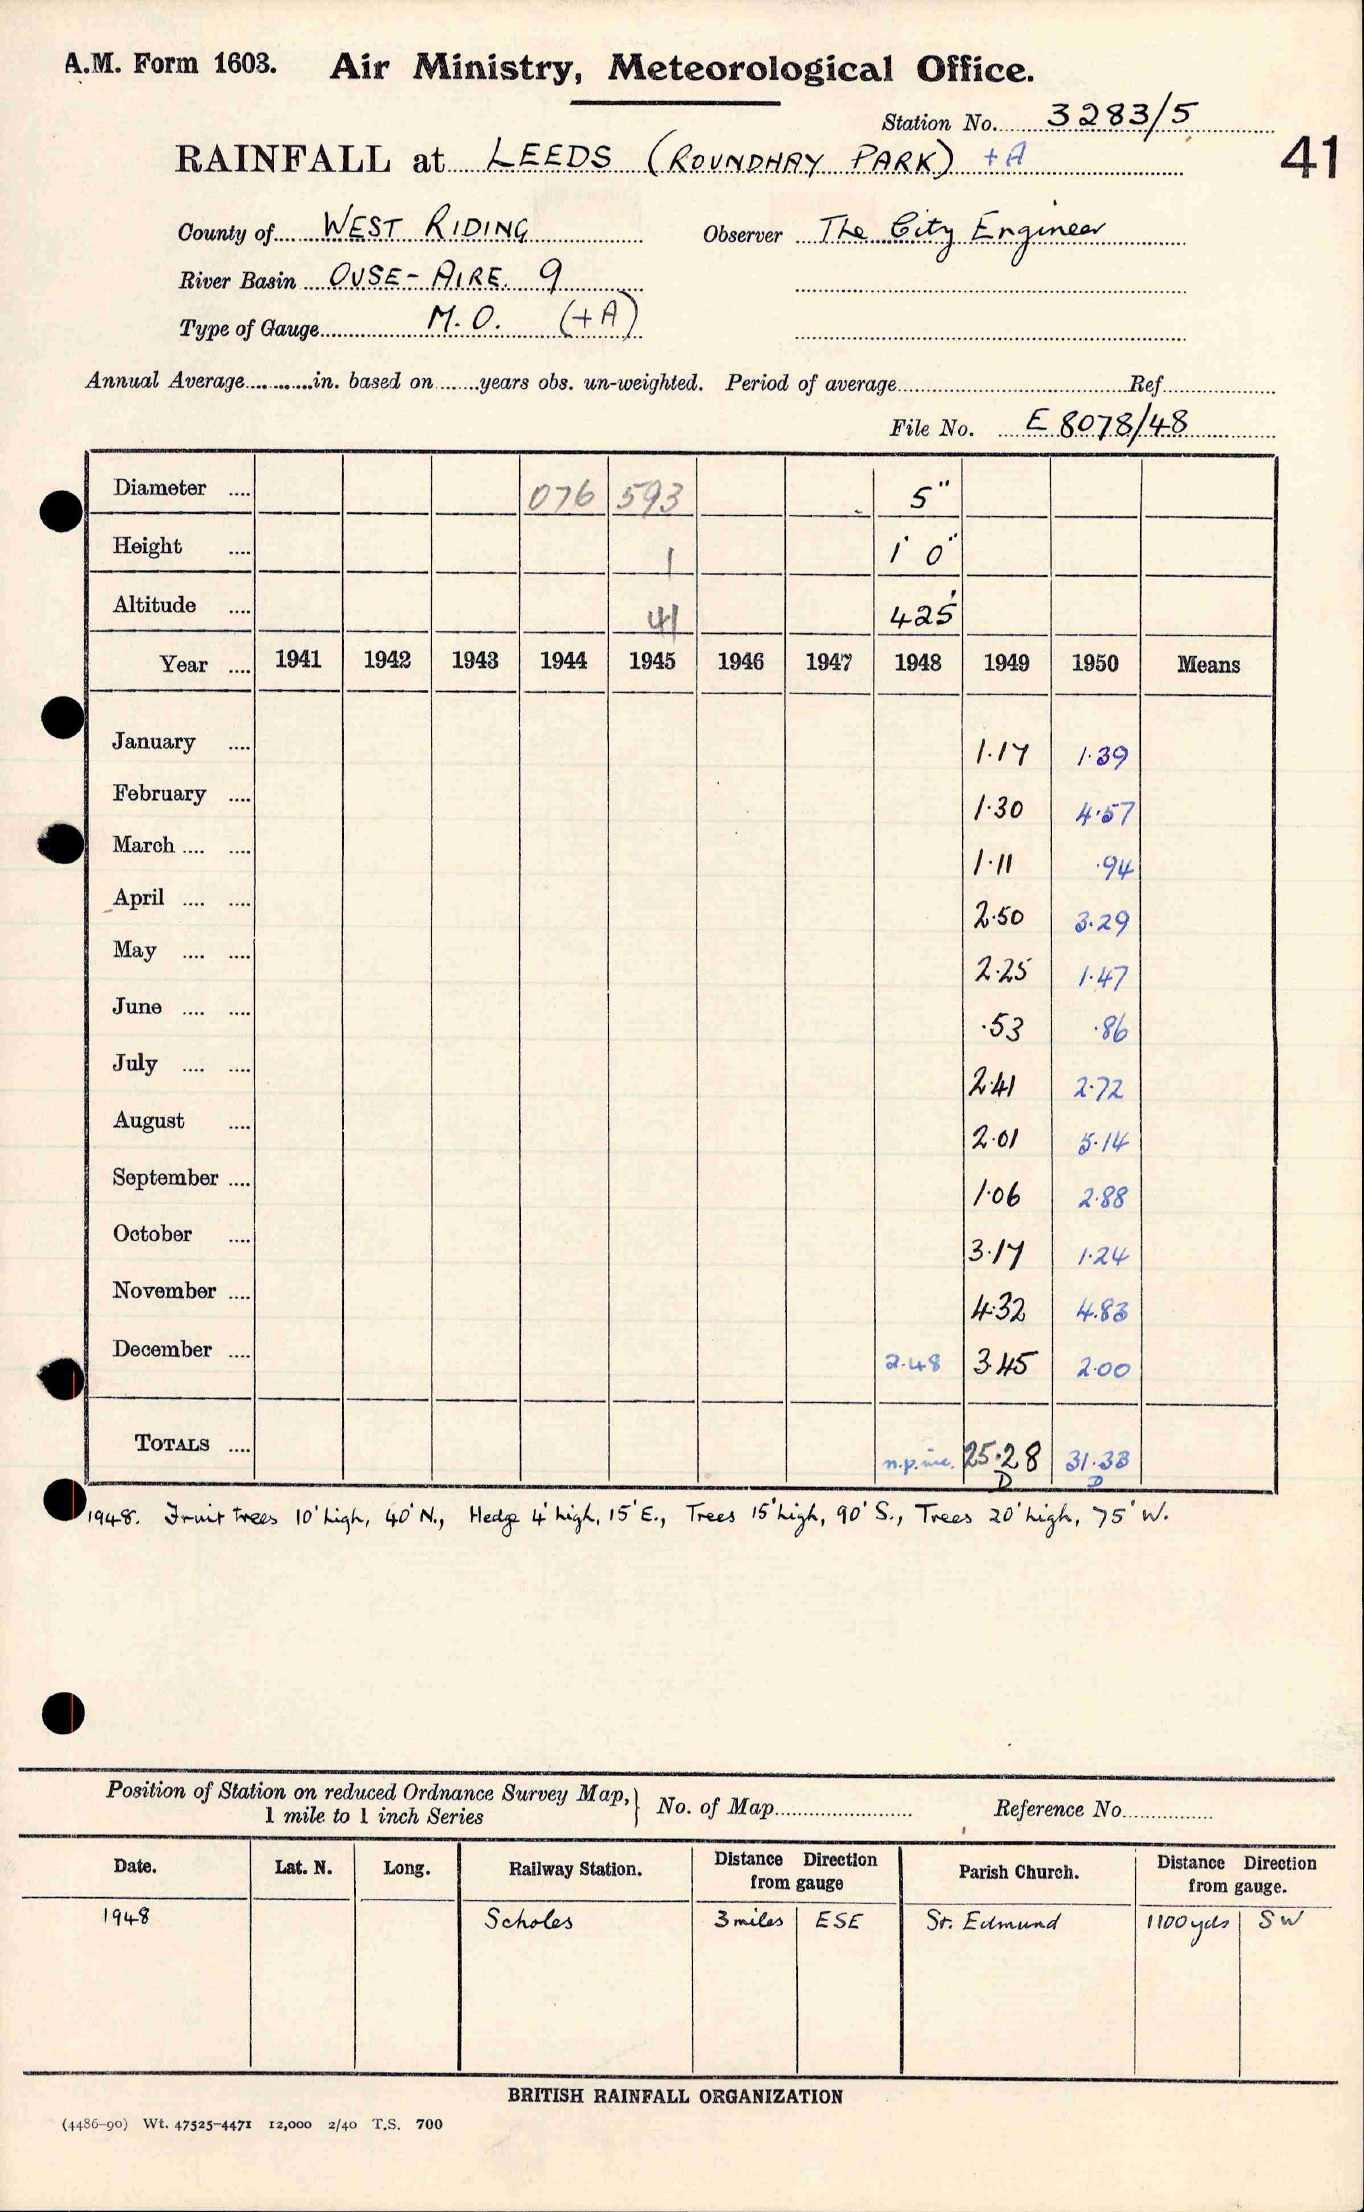 A.M. Form 1603. Air Ministry, Meteorological Office.
Station No. 3283/5
RAINFALL at LEEDS (ROUNDHAY PARK) +A
41
County of WEST RIDING Observer The City Engineer
River Basin OUSE-AIRE. 9
Type of Gauge M.O. (+A)
Annual Average in. based on years obs. un-weighted. Period of average Ref
File No. E 8078/48
Diameter .... 076 593 5"
Height .... 1 1' 0"
Altitude .... 41 425'
Year .... 1941 1942 1943 1944 1945 1946 1947 1948 1949 1950 Means
January .... 1.17 1.39
February .... 1.30 4.57
March .... .... 1.11 .94
April .... .... 2.50 3.29
May .... .... 2.25 1.47
June .... .... .53 .86
July .... .... 2.41 2.72
August .... 2.01 5.14
September .... 1.06 2.88
October .... 3.17 1.24
November .... 4.32 4.83
December .... 2.48 3.45 2.00
TOTALS .... n.p.inc. 25.28 31.33
D D
1948. Fruit trees 10' high, 40' N., Hedge 4' high, 15' E., Trees 15' high, 90' S., Trees 20' high, 75' W.
Position of Station on reduced Ordnance Survey Map, } No. of Map Reference No.
1 mile to 1 inch Series
Date. Lat. N. Long. Railway Station. Distance Direction from gauge Parish Church. Distance Direction from gauge.
1948 Scholes 3 miles ESE St. Edmund 1100 yds SW
BRITISH RAINFALL ORGANIZATION
(4486-90) Wt. 47525-4471 12,000 2/40 T.S. 700